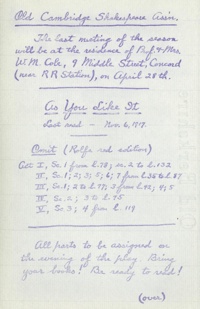 Old Cambridge Shakespeare Ass'n.
The last meeting of the season
will be at the residence of Prof. & Mrs.
W. M. Cole, 9 Middle Street, Concord
(near R R Station), on April 28th.
As You Like It
Last read — Nov. 6, '17.
Omit (Rolfe red edition)
Act I, Sc. 1 from l. 78; sc. 2 to l. 132
II, Sc. 1; 2; 3; 5; 6; 7 from l. 35 to l. 87
III, Sc. 1; 2 to l. 77; 3 from l. 92; 4; 5
IV, Sc. 2; 3 to l. 75
V, Sc. 3; 4 from l. 119
All parts to be assigned on
the evening of the play. Bring
your books! Be ready to read!
(over)